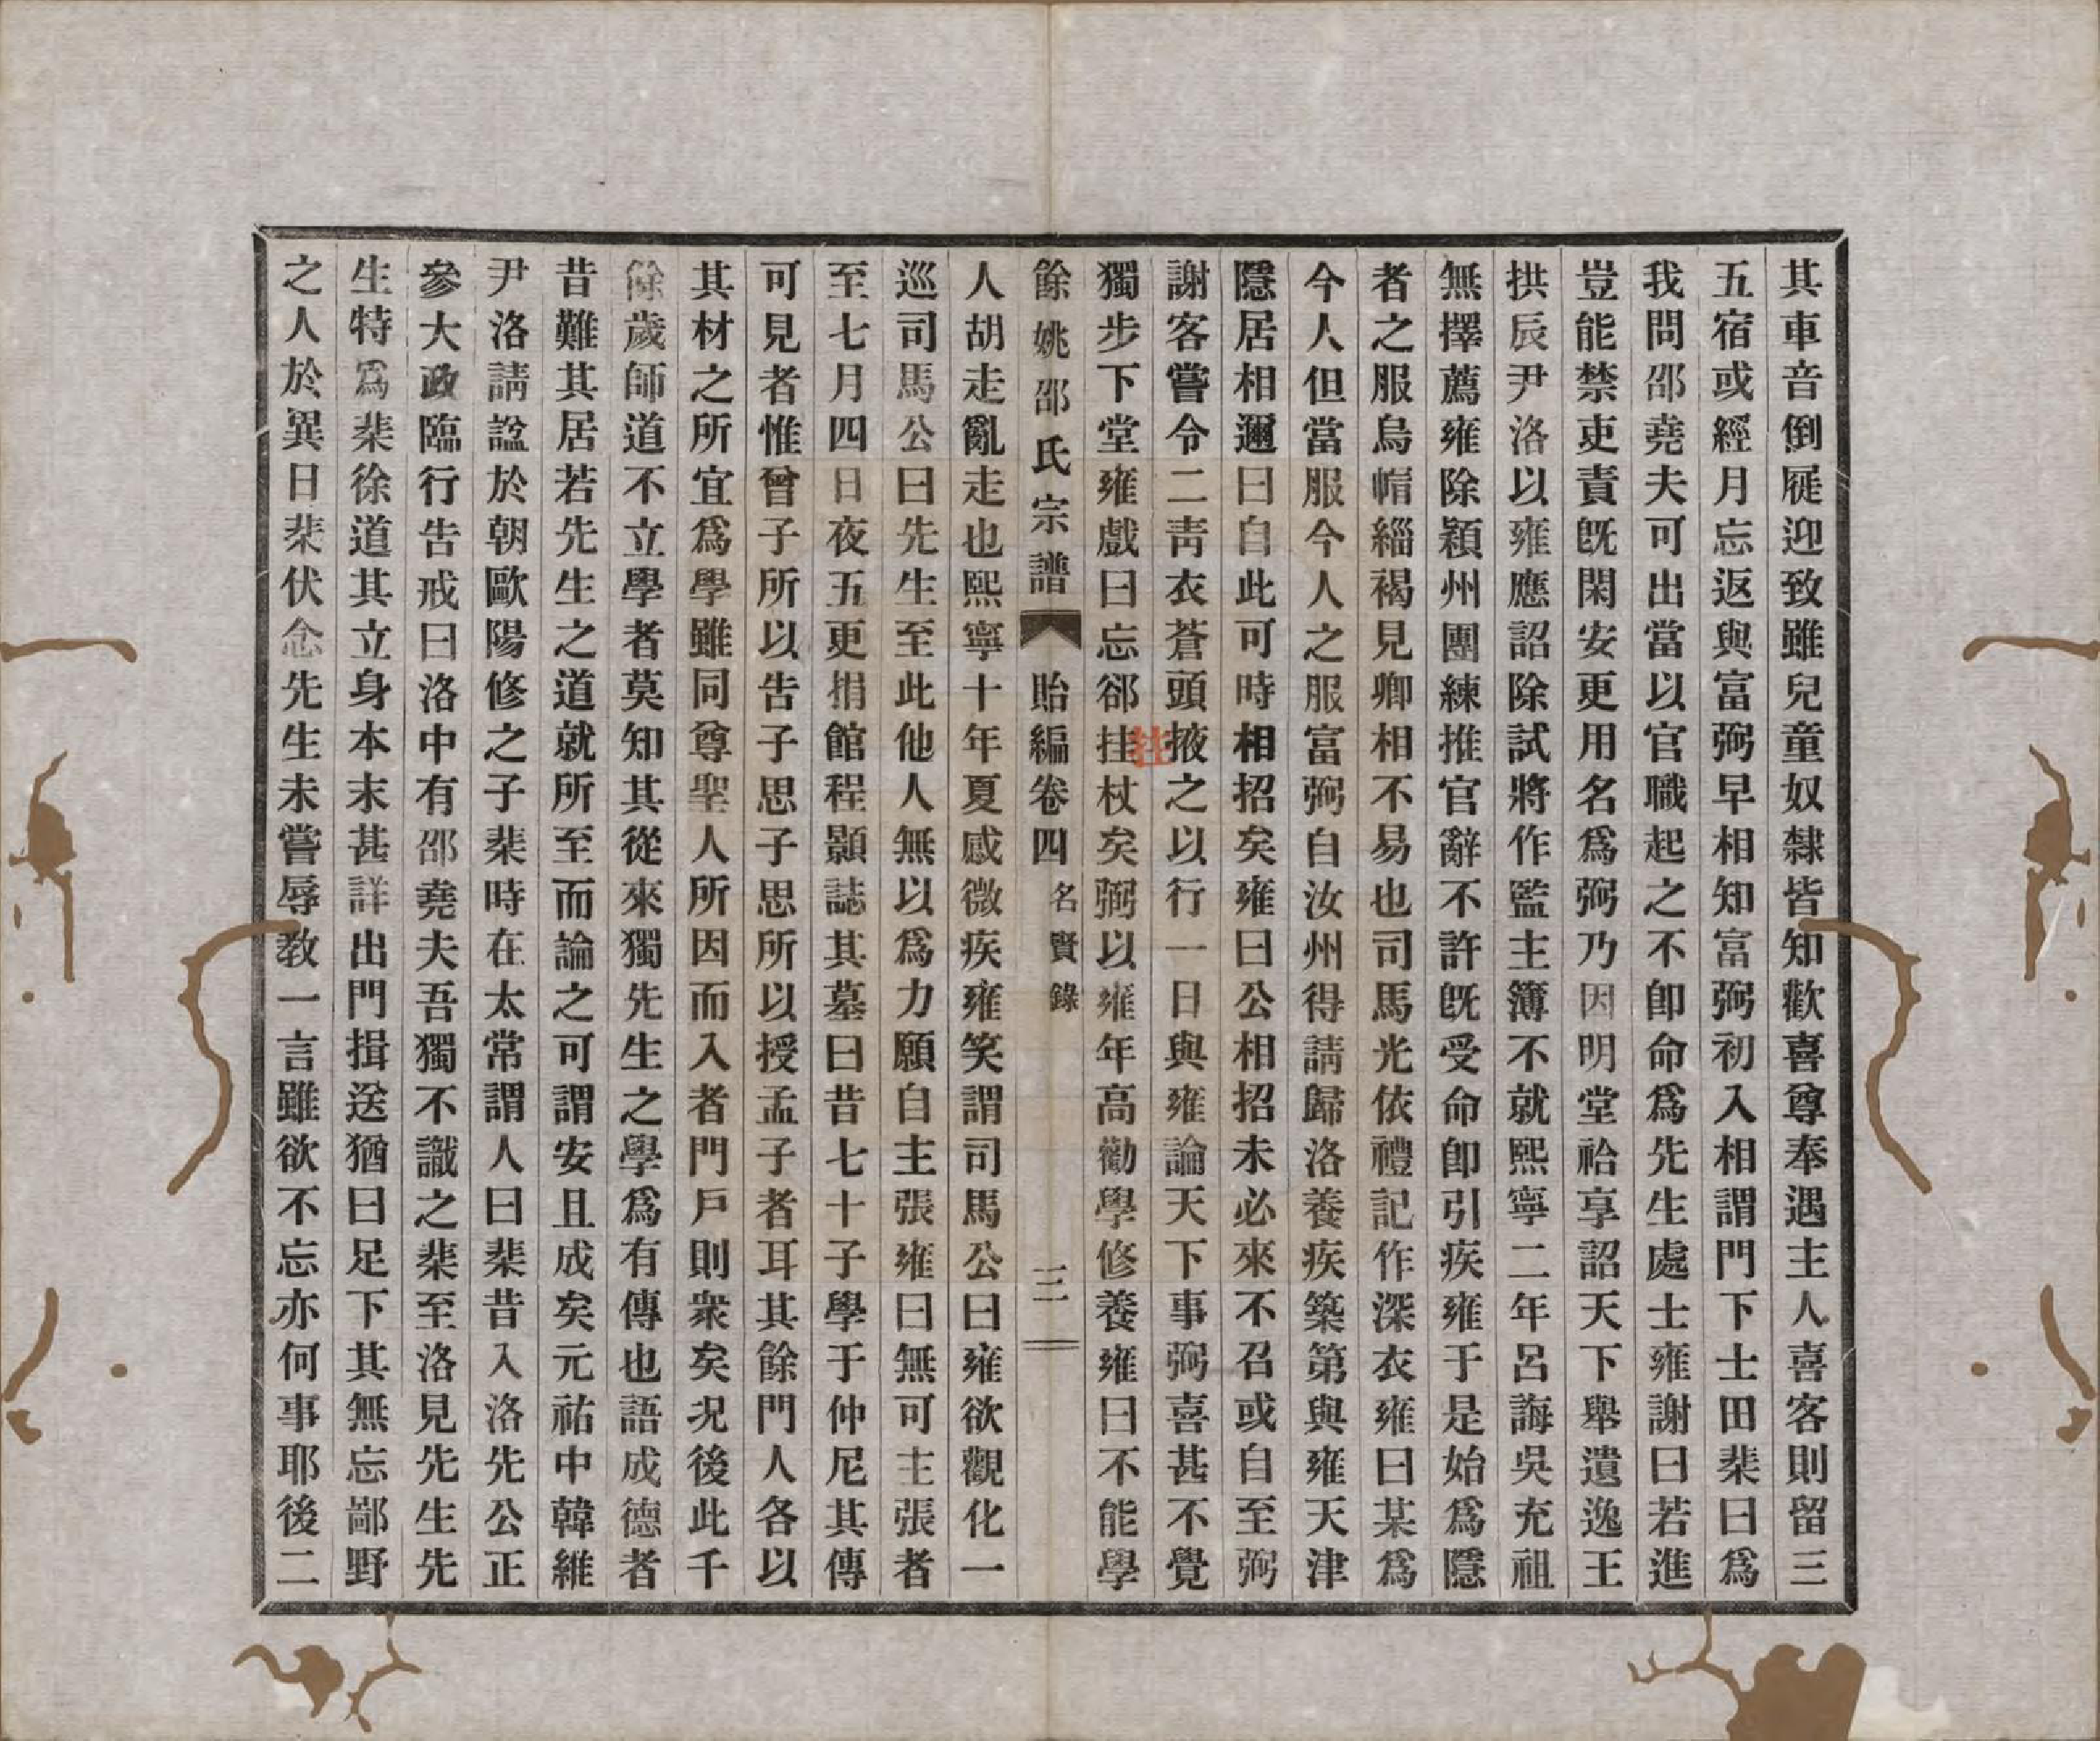 其車音倒屣迎致雖兒童奴隸皆知歡喜尊奉遇主人喜客則留三
五宿或經月忘返與富弼早相知富弼初入相謂門下士田棐曰爲
我問邵堯夫可出當以官職起之不卽命爲先生處士雍謝曰若進
豈能禁吏責旣閑安更用名爲弼乃因明堂祫享詔天下舉遺逸王
拱辰尹洛以雍應詔除試將作監主簿不就熙寧二年呂誨吳充祖
無擇薦雍除潁州團練推官辭不許旣受命卽引疾雍于是始爲隱
者之服烏帽緇褐見卿相不易也司馬光依禮記作深衣雍曰某爲
今人但當服今人之服富弼自汝州得請歸洛養疾築第與雍天津
隱居相邇曰自此可時相招矣雍曰公相招未必來不召或自至弼
謝客嘗令二靑衣蒼頭掖之以行一日與雍論天下事弼喜甚不覺
獨步下堂雍戲曰忘郤挂杖矣弼以雍年高勸學修養雍曰不能學
拄
餘姚邵氏宗譜 貽編卷四 名賢錄 三
人胡走亂走也熙寧十年夏感微疾雍笑謂司馬公曰雍欲觀化一
巡司馬公曰先生至此他人無以爲力願自主張雍曰無可主張者
至七月四日夜五更捐館程顥誌其墓曰昔七十子學于仲尼其傳
可見者惟曾子所以告子思子思所以授孟子者耳其餘門人各以
其材之所宜爲學雖同尊聖人所因而入者門戶則衆矣況後此千
餘歲師道不立學者莫知其從來獨先生之學爲有傳也語成德者
昔難其居若先生之道就所至而論之可謂安且成矣元祐中韓維
尹洛請諡於朝歐陽修之子棐時在太常謂人曰棐昔入洛先公正
參大政臨行告戒曰洛中有邵堯夫吾獨不識之棐至洛見先生先
生特爲棐徐道其立身本末甚詳出門揖送猶曰足下其無忘鄙野
之人於異日棐伏念先生未嘗辱敎一言雖欲不忘亦何事耶後二